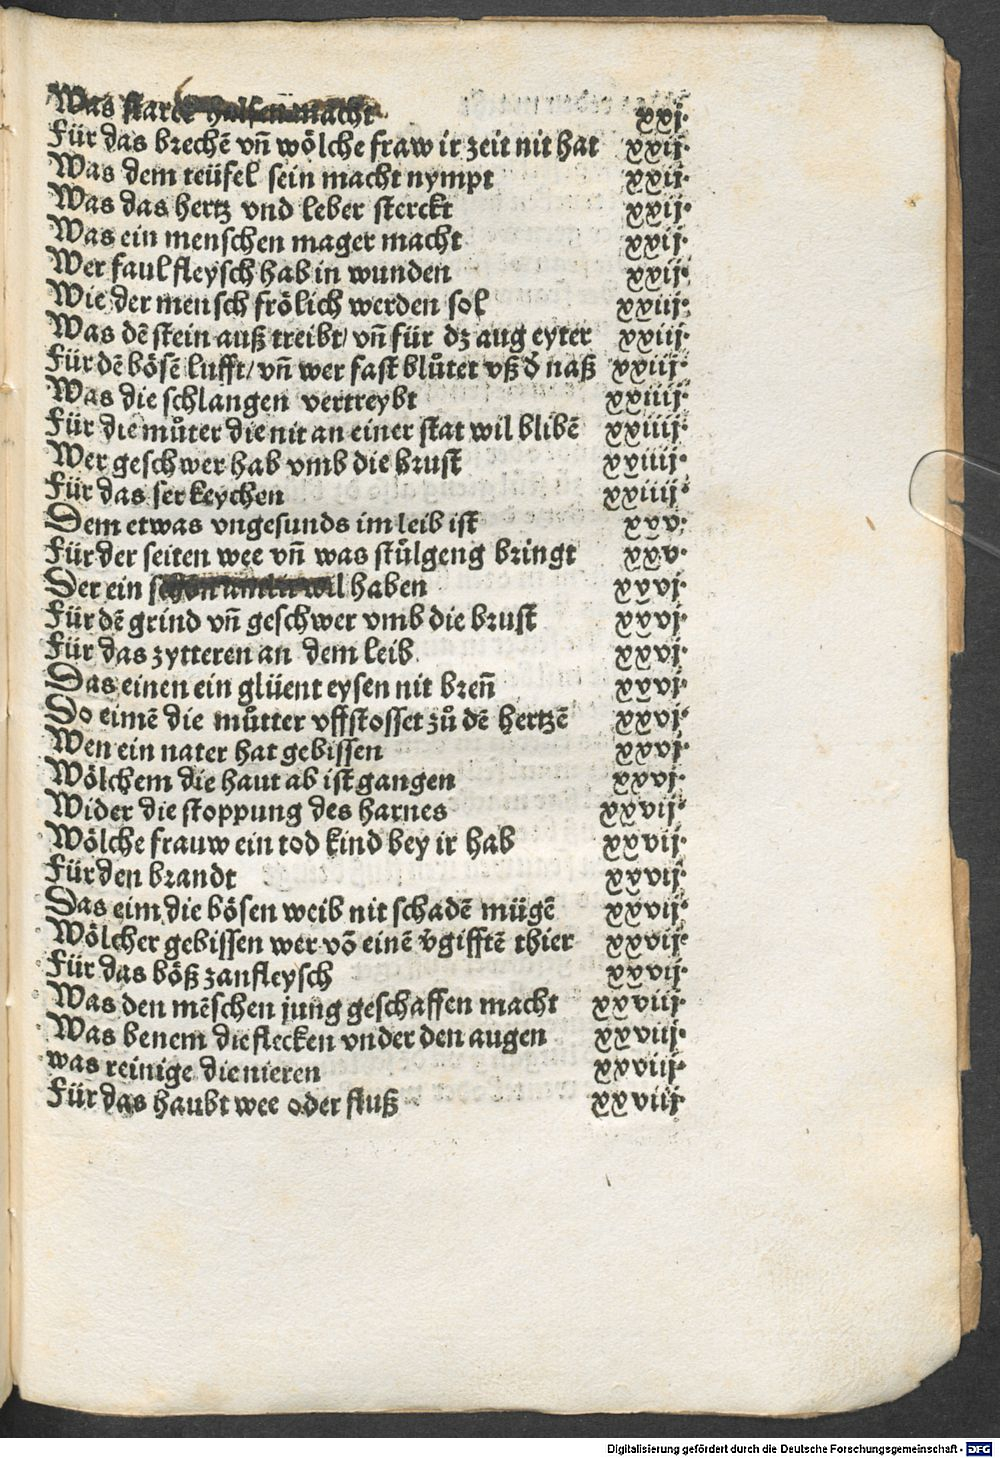 Was starck macht xxj.
Für das brechē vñ wölche fraw ir zeit nit hat xxij.
Was dem teüfel sein macht nympt xxij.
Was das hertz vnd leber sterckt xxij.
Was ein menschen mager macht xxij.
Wer faul fleysch hab in wunden xxij.
Wie der mensch frölich werden sol xxiij.
Was dē stein auß treibt/ vñ für dz aug eyter xxiij.
Für dē bösē lufft/ vñ wer fast blůtet vß d̕ naß xxiij.
Was die schlangen vertreybt xxiiij.
Für die můter die nit an einer stat wil blibē xxiiij.
Wer geschwer hab vmb die brust xxiiij.
Für das ser keychen xxiiij.
Dem etwas vngesunds im leib ist xxv.
Für der seiten wee vñ was stůlgeng bringt xxv.
Der ein wil haben xxvj.
Für dē grind vñ geschwer vmb die brust xxvj.
Für das zytteren an dem leib xxvj.
Das einen ein glüent eysen nit breñ xxvj.
So eimē die můtter vffstosset zů dē hertzē xxvj.
Wen ein nater hat gebissen xxvj.
Wölchem die haut ab ist gangen xxvj.
Wider die stoppung des harnes xxvij.
Wölche frauw ein tod kind bey ir hab xxvij.
Für den brandt xxvij.
Das eim die bösen weib nit schadē mügē xxvij.
Wölcher gebissen wer vō einē v̕gifftē thier xxvij.
Für das böß zanfleysch xxvij.
Was den mēschen jung geschaffen macht xxviij.
Was benem die flecken vnder den augen xxviij.
was reinige die nieren xxviij.
Für das haubt wee oder fluß xxviij.
Digitalisierung gefördert durch die Deutsche Forschungsgemeinschaft - DFG